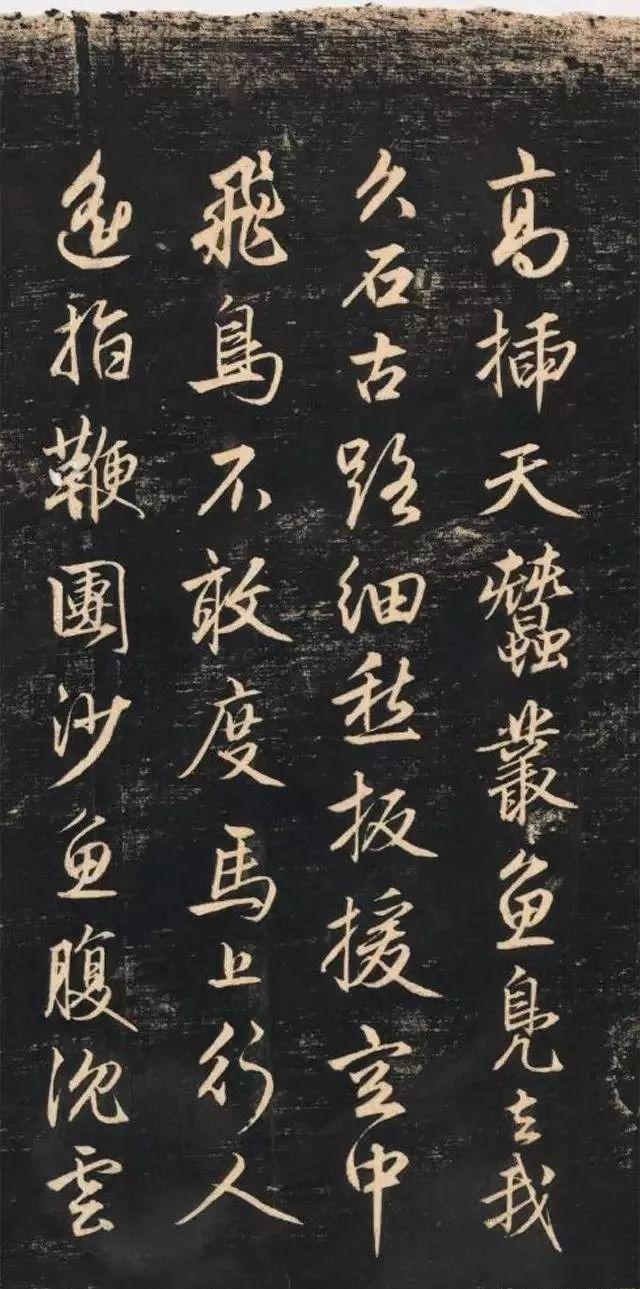 高插天蠶叢魚鳧去我
久石古路細愁扳援空中
飛鳥不敢度馬上行人
遙指鞭團沙魚腹沈雲